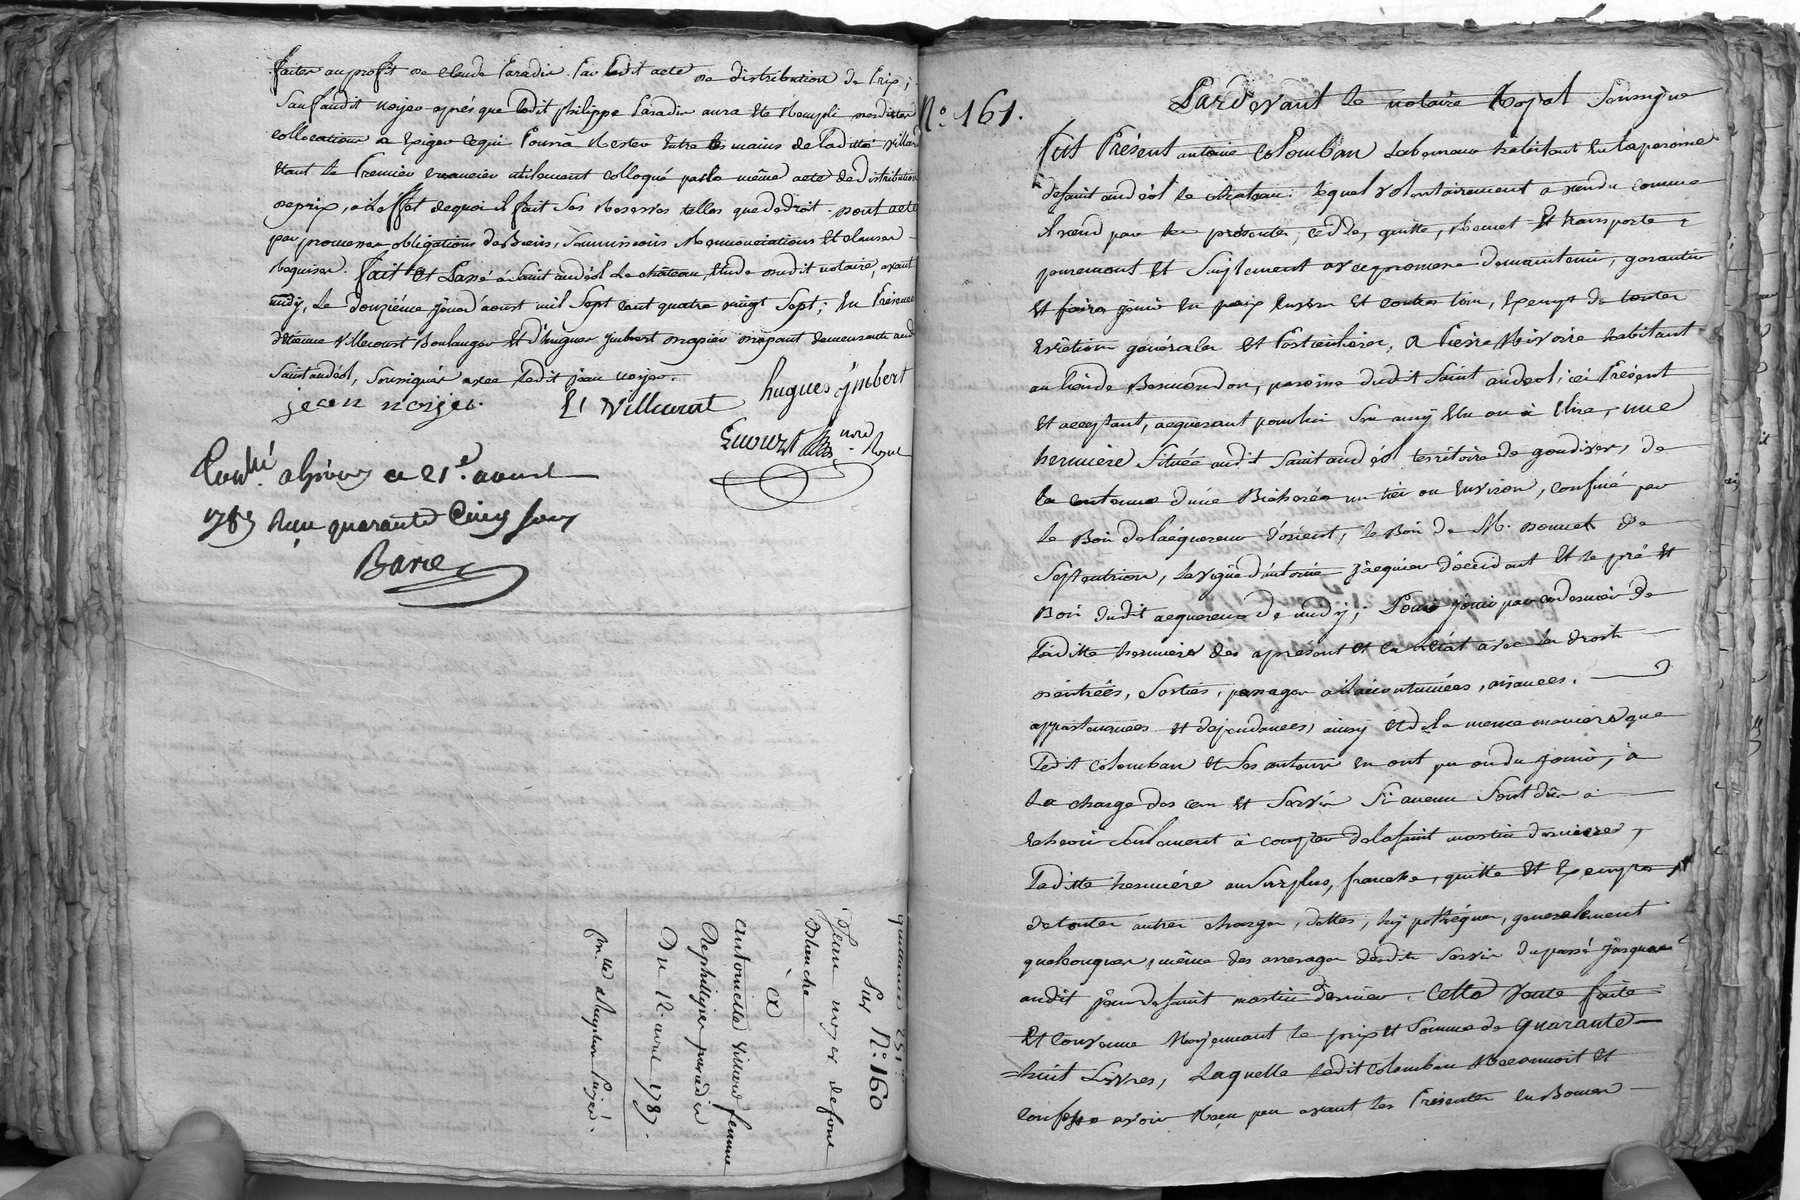 faites au profit de Claude Paradis par ledit acte de distribution de prix;
Sauf audit noyer après que ledit philippe paradis aura été Rempli desdittes
collocations a Exiger ce qui Pourra Rester Entre les mains de laditte villard
Etant le Premier creancier utilement colloqué par le même acte de distribution
de prix, a l'effet de quoi il fait Ses Reserves telles que de droit. dont acte
par promesses obligations de Biens, Soumissions Renonciations Et clauses
Requises. fait Et Passé à Saint andéol Le château, Etude dudit notaire, avant
midy, Le douzième jour d'aoust mil Sept cent quatre vingt Sept; En Presence
d'étienne villecourt Boulanger Et d'hugues ymbert drapier drapant demeurants aud.
Saint andéol, Soussignés avec ledit jean noyer.
jean noijer. Et Villecourt hugues ymbert
Controllé a Privas ce 21e aoust
1787 Reçu quarante Cinq Sous
Barie
quittance 251#
Sur N° 160
Jean noyer de font
blanche
à
antoinette villard femme
de philippe paradis
Du 12 aout 1787.
N° 161.
Pardevant le notaire Royal Soussigné
fut Présent antoine Colomban Laboureur habitant En la paroisse
de saint andéol le chateau. lequel volontairement a vendu comme
il vend par les présentes, cedde, quitte, Remet Et transporte
purement Et Simplement avec promesse de maintenir, garantir
Et faire jouir En paix Envers Et contre tous, Exempt de toutes
Evictions générales Et Particulieres, a Pierre Rivoire habitant
au lieu de Bermondon, paroisse dudit Saint andeol; ici Présent
Et acceptant, acquerant pour lui Son amy Elu ou à Elire, une
hermiere Située audit Saint andéol territoire de goudiver, de
la contenue d'une Bicherée un tier ou Environ, confiné par
le Bois de l'acquereur d'orient, le Bois de M. donnet de
Septentrion, la vigne d'antoine jacquier d'occident Et le pré Et
Bois dudit acquereur de midy; Pour jouir par ce dernier de
laditte hermiere des apresent Et en l'état avec les droits
d'entrées, Sorties, passages accoutumées, aisances,
appartenances et dependances, ainsy Et de la meme maniere que
ledit Colomban Et Ses auteurs En ont pu ou du jouir, à
la charge des cens Et Servis Si aucuns Sont dûs a
Echeoir Seulement à compter de la saint martin derniere,
laditte hermiére au Surplus, franche, quitte Et Exempte
de toutes autres charges, dettes, hypothéques, generalement
quelconques, même des arrerages desdits Servis du passé jusques
audit jour de saint martin dernier. Cette vente faite
Et convenue Moyennant le prix et Somme de quarante
huit Livres, Laquelle ledit Colomban Reconnoit Et
confesse avoir Reçu peu avant les Présentes En Bonnes